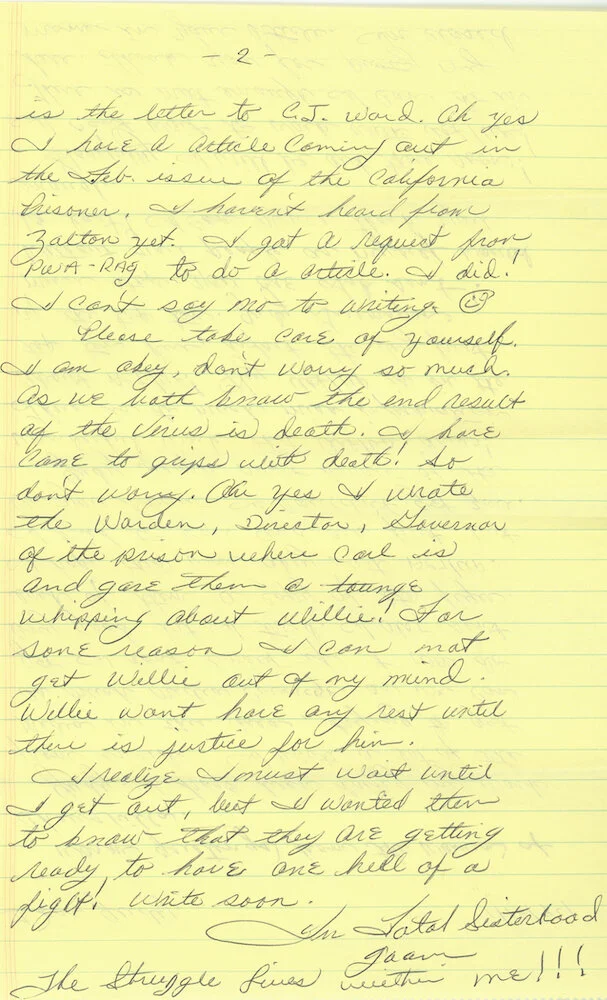 - 2 -
is the letter to C.J. Ward. Oh yes
I have a article coming out in
the Feb. issue of the California
Prisoner. I haven't heard from
Zalton yet. I got a request from
PWA-RAG to do a article. I did!
I can't say no to writing. ☺
Please take care of yourself.
I am okey, don't worry so much.
As we both know the end result
of the Virus is death. I have
came to grips with death! So
don't worry. Oh yes I wrote
the Warden, Director, Governor
of the prison where Carl is
and gave them a tounge
whipping about Willie! For
some reason I can not
get Willie out of my mind.
Willie won't have any rest until
there is justice for him.
I realize I must wait until
I get out, but I wanted them
to know that they are getting
ready to have one hell of a
fight! Write soon.
In Total Sisterhood
Joann
The Struggle lives within me!!!